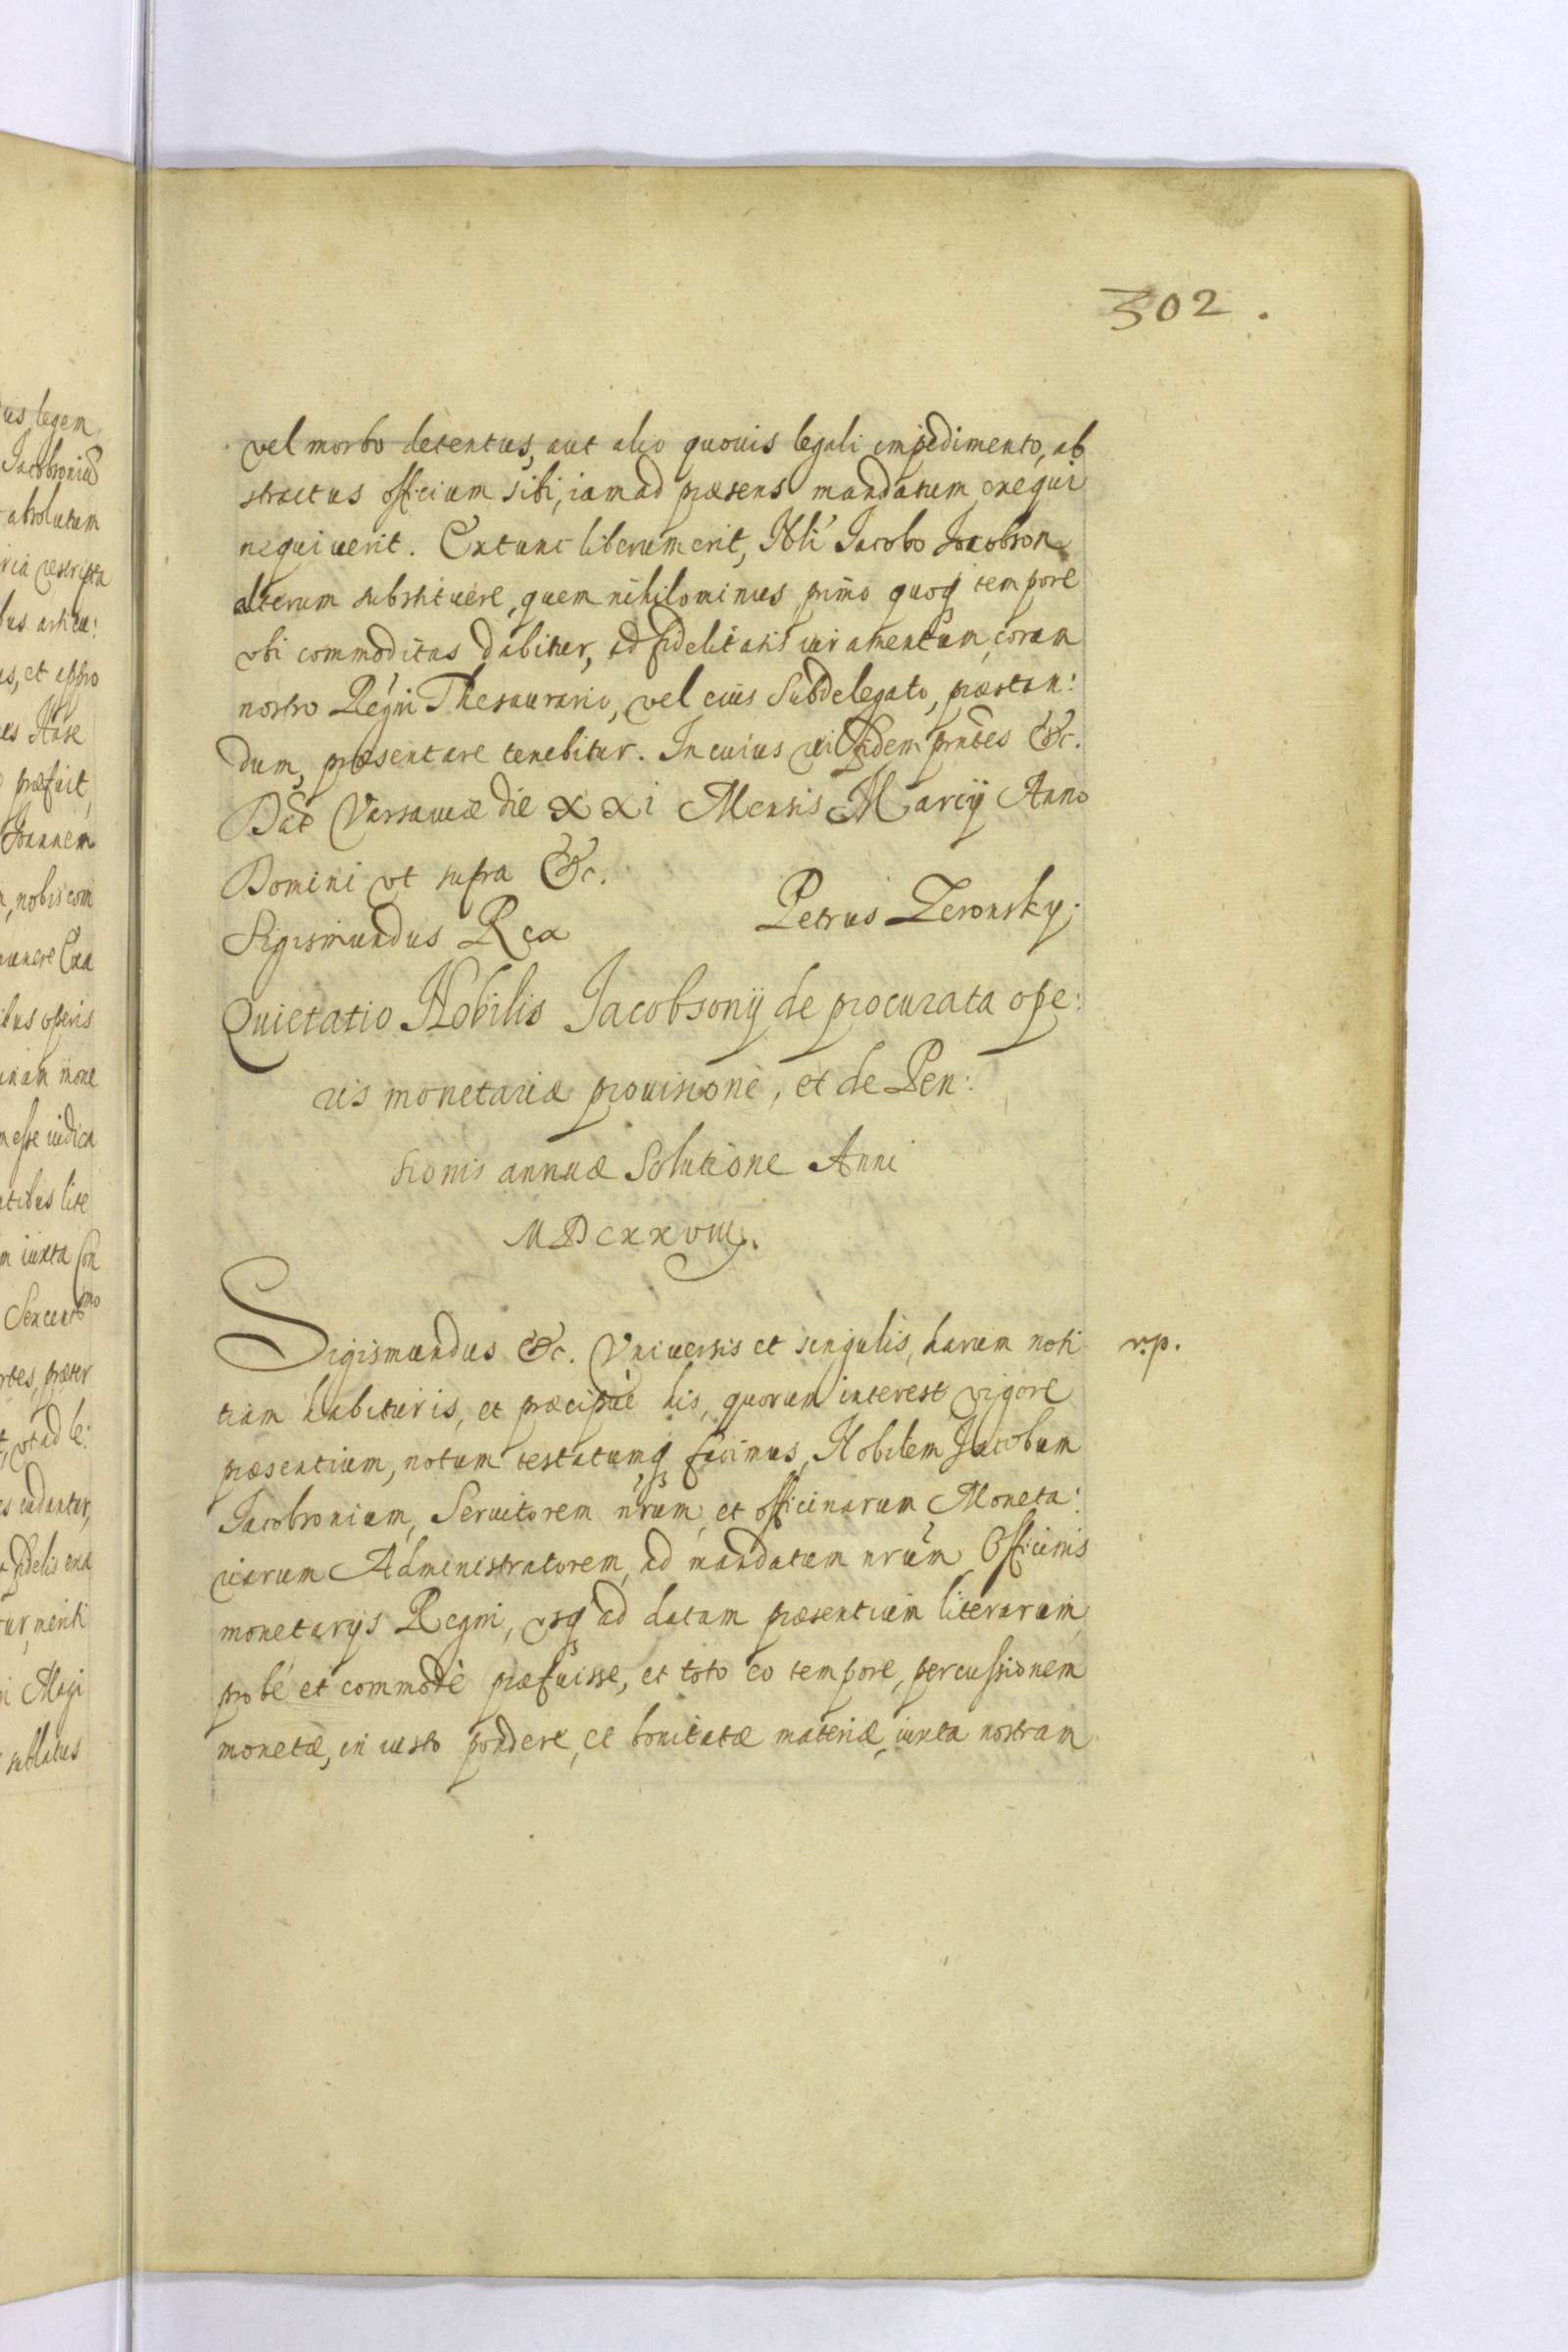 302.
vel morbo detentus, aut alio quouis legali impedimento, ab
stractus officium sibi, iam ad præsens mandatum exequi
nequiuerit. Extunc liberum erit, Nbli Jacobo Jacobson
alterum substituere, quem nihilominus primo quoq tempore
vbi commoditas dabitur, ad fidelitatis iuramentum, coram
nostro Regni Thesaurario, vel eius Subdelegato, præstan:
dum, præsentare tenebitur. In cuius rei fidem prntes &c.
Dat Varsauiæ die xxi Mensis Marcij Anno
Domini vt supra &c.
Sigismundus Rex
Petrus Zeronsky.
Quietatio Nobilis Jacobsonij de procurata ope:
ris monetariæ prouisione, et de Pen:
sionis annuæ Solutione Anni
MDCXXVIII.
Sigismundus &c. Vniuersis et singulis, harum noti
r.p.
tiam habituris, et præcipuè his, quorum interest vigore
præsentium, notum testatumq facimus, Nobilem Jacobum
Jacobsonium, Seruitorem nrum, et officinarum Moneta:
riarum Administratorem, ad mandatum nrum Officinis
monetarijs Regni, vsq ad datam præsentium literarum,
probé et commodè præfuisse, et toto eo tempore, percussionem
monetæ, in iusto pondere, et bonitatæ materiæ, iuxta nostram
us, legem
Jacobsoniũ
absolutum
ria rescripta
bus articu:
as, et appro
es Hase
præfuit,
Joannem
, nobis com
munere Exa
ibus operis
inam mone
esse iudica
atibus lite
m iuxta Con
Sexcentmo
rtes, præter
t, vt ad le:
s cudantur,
fidelis exa
ur, meriti
i Magi
sublatus